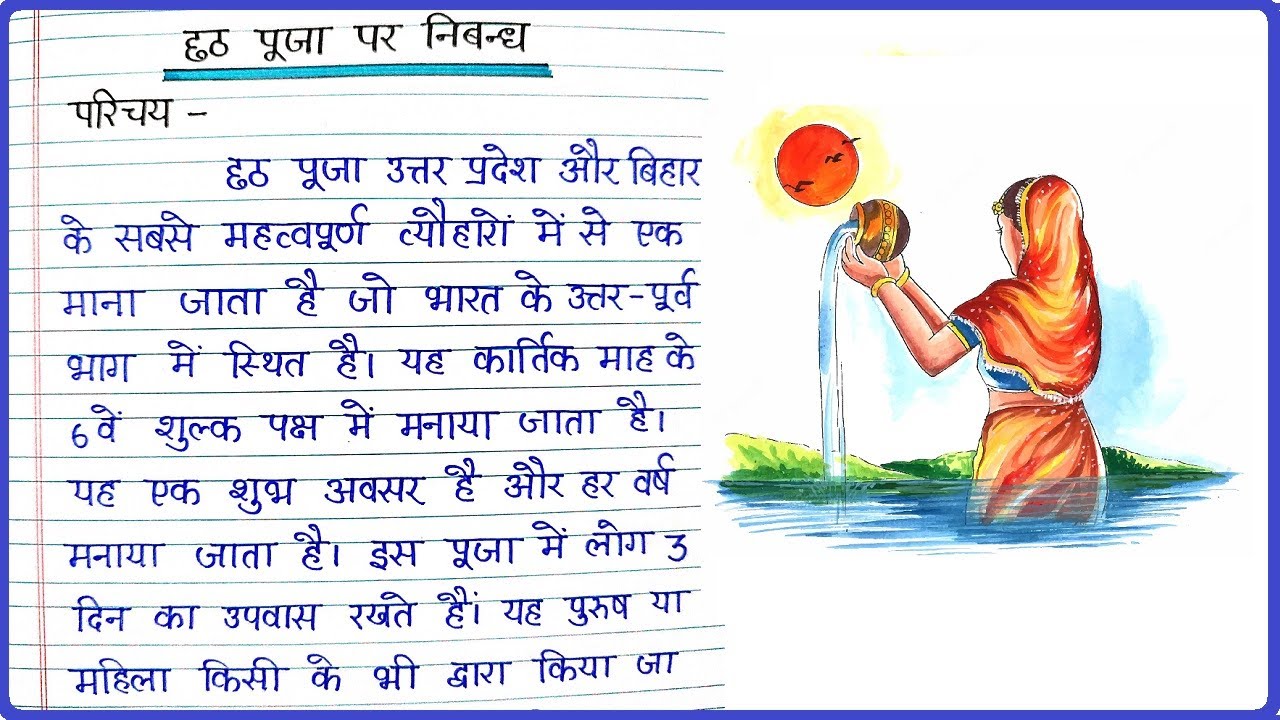 छठ पूजा पर निबन्ध
परिचय -
छठ पूजा उत्तर प्रदेश और बिहार
के सबसे महत्वपूर्ण त्यौहारों में से एक
माना जाता है जो भारत के उत्तर-पूर्व
भाग में स्थित है। यह कार्तिक माह के
6वें शुल्क पक्ष में मनाया जाता है।
यह एक शुभ अवसर है और हर वर्ष
मनाया जाता है। इस पूजा में लोग 3
दिन का उपवास रखते हैं। यह पुरुष या
महिला किसी के भी द्वारा किया जा